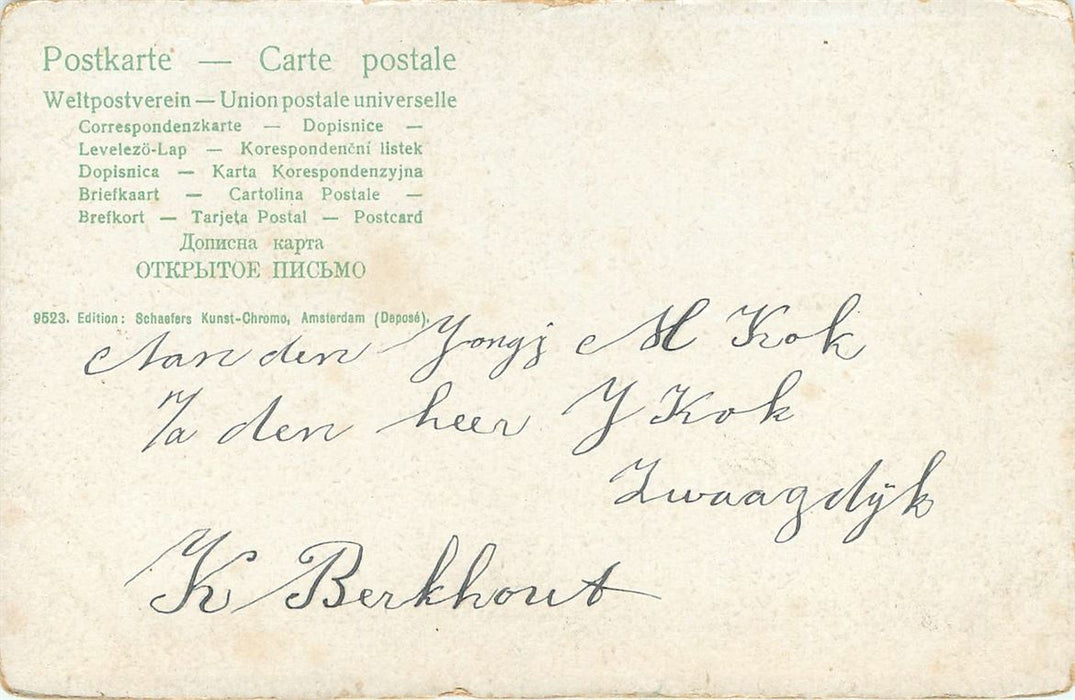 Postkarte — Carte postale
Weltpostverein — Union postale universelle
Correspondenzkarte — Dopisnice —
Levelező-Lap — Korespondenční listek
Dopisnica — Karta Korespondenzyjna
Briefkaart — Cartolina Postale —
Brefkort — Tarjeta Postal — Postcard
Дописна карта
ОТКРЫТОЕ ПИСЬМО
9523. Edition: Schaefers Kunst-Chromo, Amsterdam (Deposé).
Aan den Jongj M Kok
P/a den heer J Kok
Zwaagdijk
K Berkhout